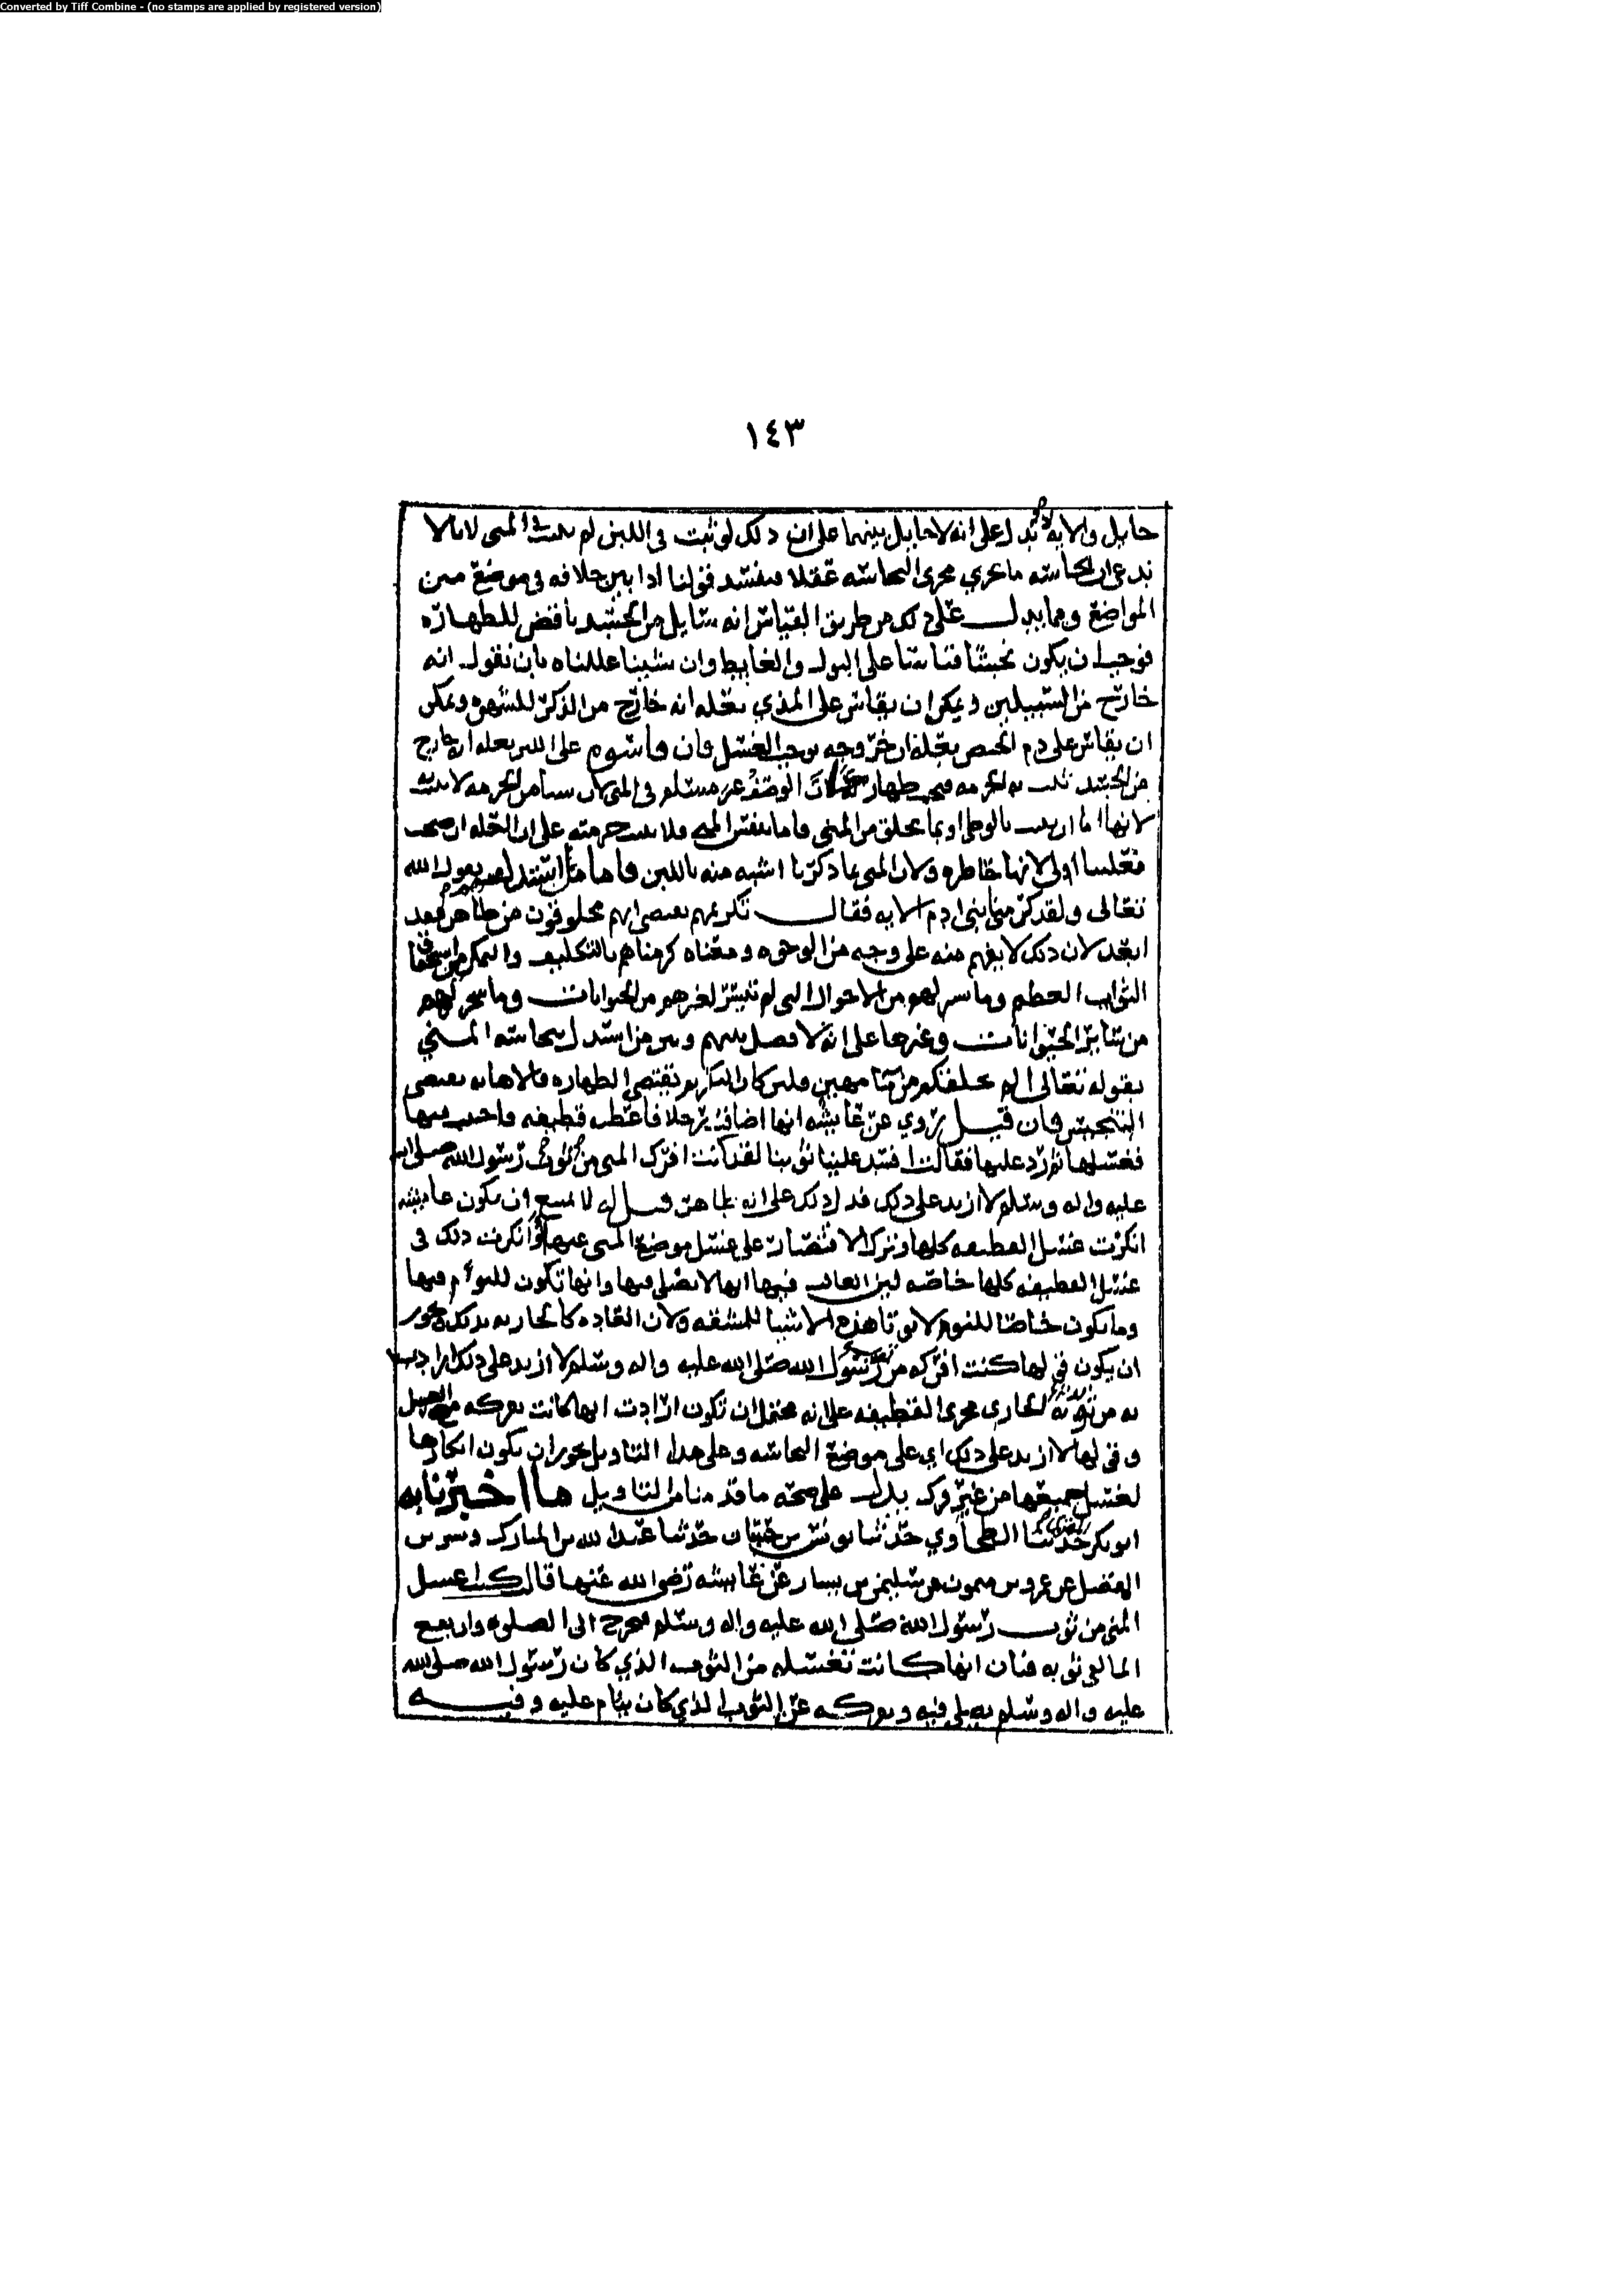 Converted by Tiff Combine - (no stamps are applied by registered version)
١٤٣
حايل والايه لا تدل على انه لا حايل بينهما على ان ذلك لو ثبت في اللبن لم يثبت في المني لانا لا
ندعي ان النجاسه ما تجري مجرى النجاسه عقلا فيفسد قولنا اذا بين خلافه في موضع من
المواضع ومما يدل على ذلك من طريق القياس انه سايل من الجسد ناقض للطهاره
فوجب ان يكون نجسا قياسا على البول والغايط وان شينا عللناه بان نقول انه
خارج من السبيلين ويمكن ان يقاس على المذي بعله انه خارج من الذكر للشهوه ويمكن
ان يقاس على دم الحيض بعلة ان خروجه يوجب الغسل فان قاسوه على اللبن بعله انه خارج
من الجسد تثبت به الحرمه فيجب طهارته كان الوصف غير مسلم في المني لان سيا من الحرمه لا يثبت به
لانها اما ان تثبت بالوطى او بما يخلق من المني فاما بنفس المني فلا يثبت حرمته على ان العله ان صحت
فعلتنا اولى لانها حاظره ولان المني بما ذكرنا اشبه منه باللبن فاما من استدل بقول الله
تعالى ولقد كرمنا بني ادم الايه فقال تكريمهم يقتضي انهم مخلوقون من طاهر فقد
ابعد لان ذلك لا يفهم منه على وجه من الوجوه ومعناه كرمناهم بالتكليف والتمكين من استحقاق
الثواب العظيم وما يسر لهم من الاحوال التي لم تتيسر لغيرهم من الحيوانات وما سخر لهم
من ساير الحيوانات وغيرها على انه لا فصل بينهم وبين من استدل بنجاسه المني
بقوله تعالى الم نخلقكم من ما مهين فلين كان التكريم يقتضي الطهاره فالاهانه تقتضي
التنجيس فان قيل روي عن عايشه انها اضافت رجلا فاعطته قطيفه فاجنب فيها
فغسلها ثم رد عليها فقالت افسد علينا ثوبنا لقد كنت افرك المني من ثوب رسول الله صلى الله
عليه واله وسلم لا ازيد على ذلك فدل ذلك على انه طاهر قيل له لا يمتنع ان يكون عايشه
انكرت غسل القطيفه كلها وترك الاقتصار على غسل موضع المني منها او انكرت ذلك في
غسل القطيفه كلها خاصه لان الغالب فيها انها لا يصلى فيها وانها تكون للنوام فيها
وما يكون خاصا للنوم لا يوقا هذه الاشيا للمشقه ولان العاده كالجاريه بذلك ويجوز
ان يكون قولها كنت افركه من ثوب رسول الله صلى الله عليه واله وسلم لا ازيد على ذلك ارادت
به من ثوبه الجاري مجرى القطيفه على انه يحتمل ان تكون ارادت انها كانت تفركه مع الغسل
وقولها لا ازيد على ذلك اي على موضع النجاسه وعلى هذا التاويل يجوز ان يكون انكارها
لغسل جميعها من غير فرك يدل على صحه ما قدمنا من التاويل ما اخبرنا به
ابو بكر حدثنا الطحاوي حدثنا يونس حدثنا يحيى بن حسان حدثنا عبد الله بن المبارك وبشر بن
المفضل عن عمرو بن ميمون عن سليمن بن يسار عن عايشه رضي الله عنها قالت كنت اغسل
المني من ثوب رسول الله صلى الله عليه واله وسلم فيخرج الى الصلوه وان بقع
الما لفي ثوبه فبان انها كانت تغسله من الثوب الذي كان رسول الله صلى الله
عليه واله وسلم يصلي فيه وتفركه عن الثوب الذي كان ينام عليه وفيه